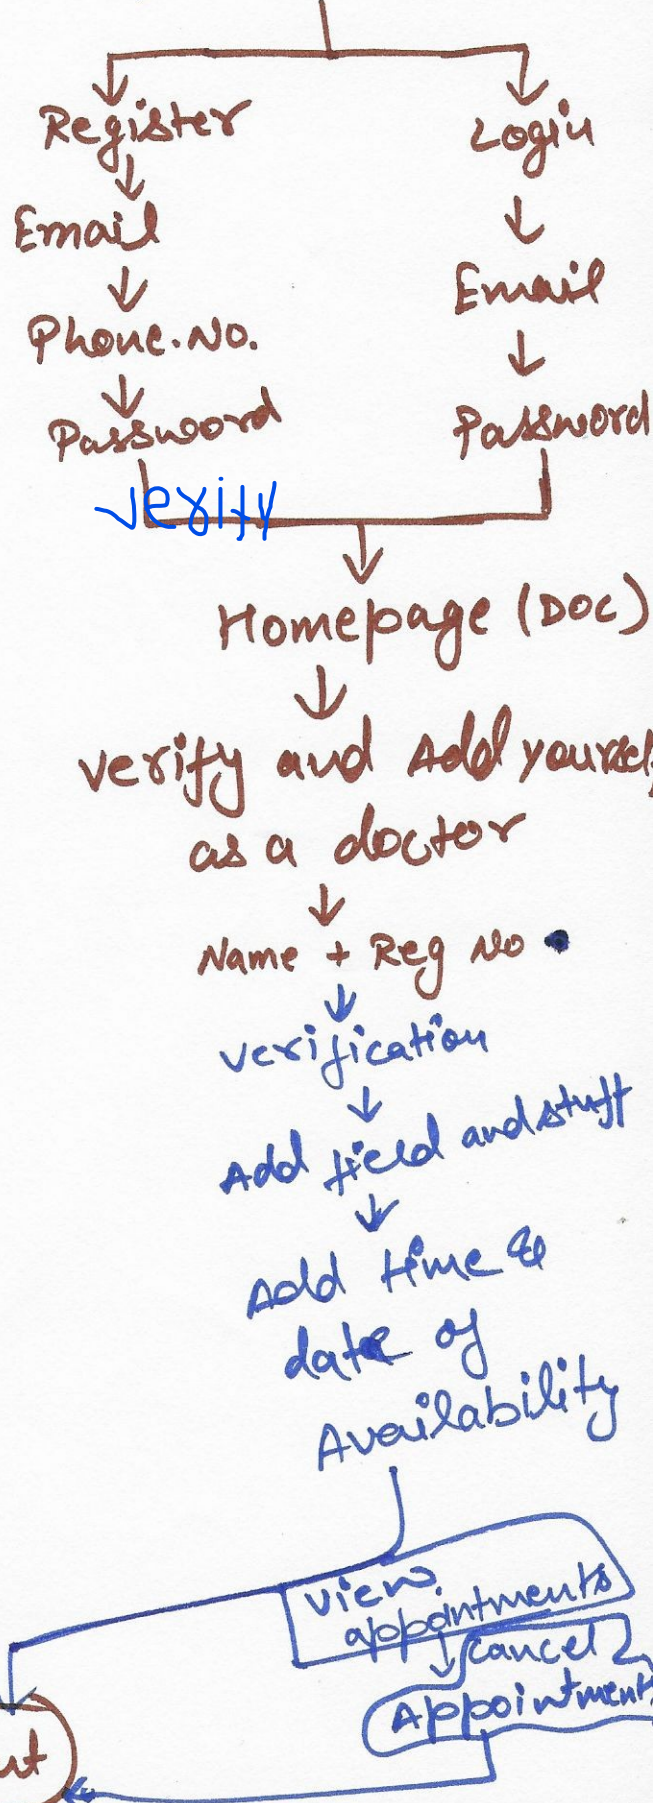 Register
Login
Email
Email
Phone.No.
Password
Password
verify
Homepage (DOC)
verify and Add yourself
as a doctor
Name + Reg No
verification
Add field and stuff
Add time &
date of
Availability
view
appointments
cancel
Appointment